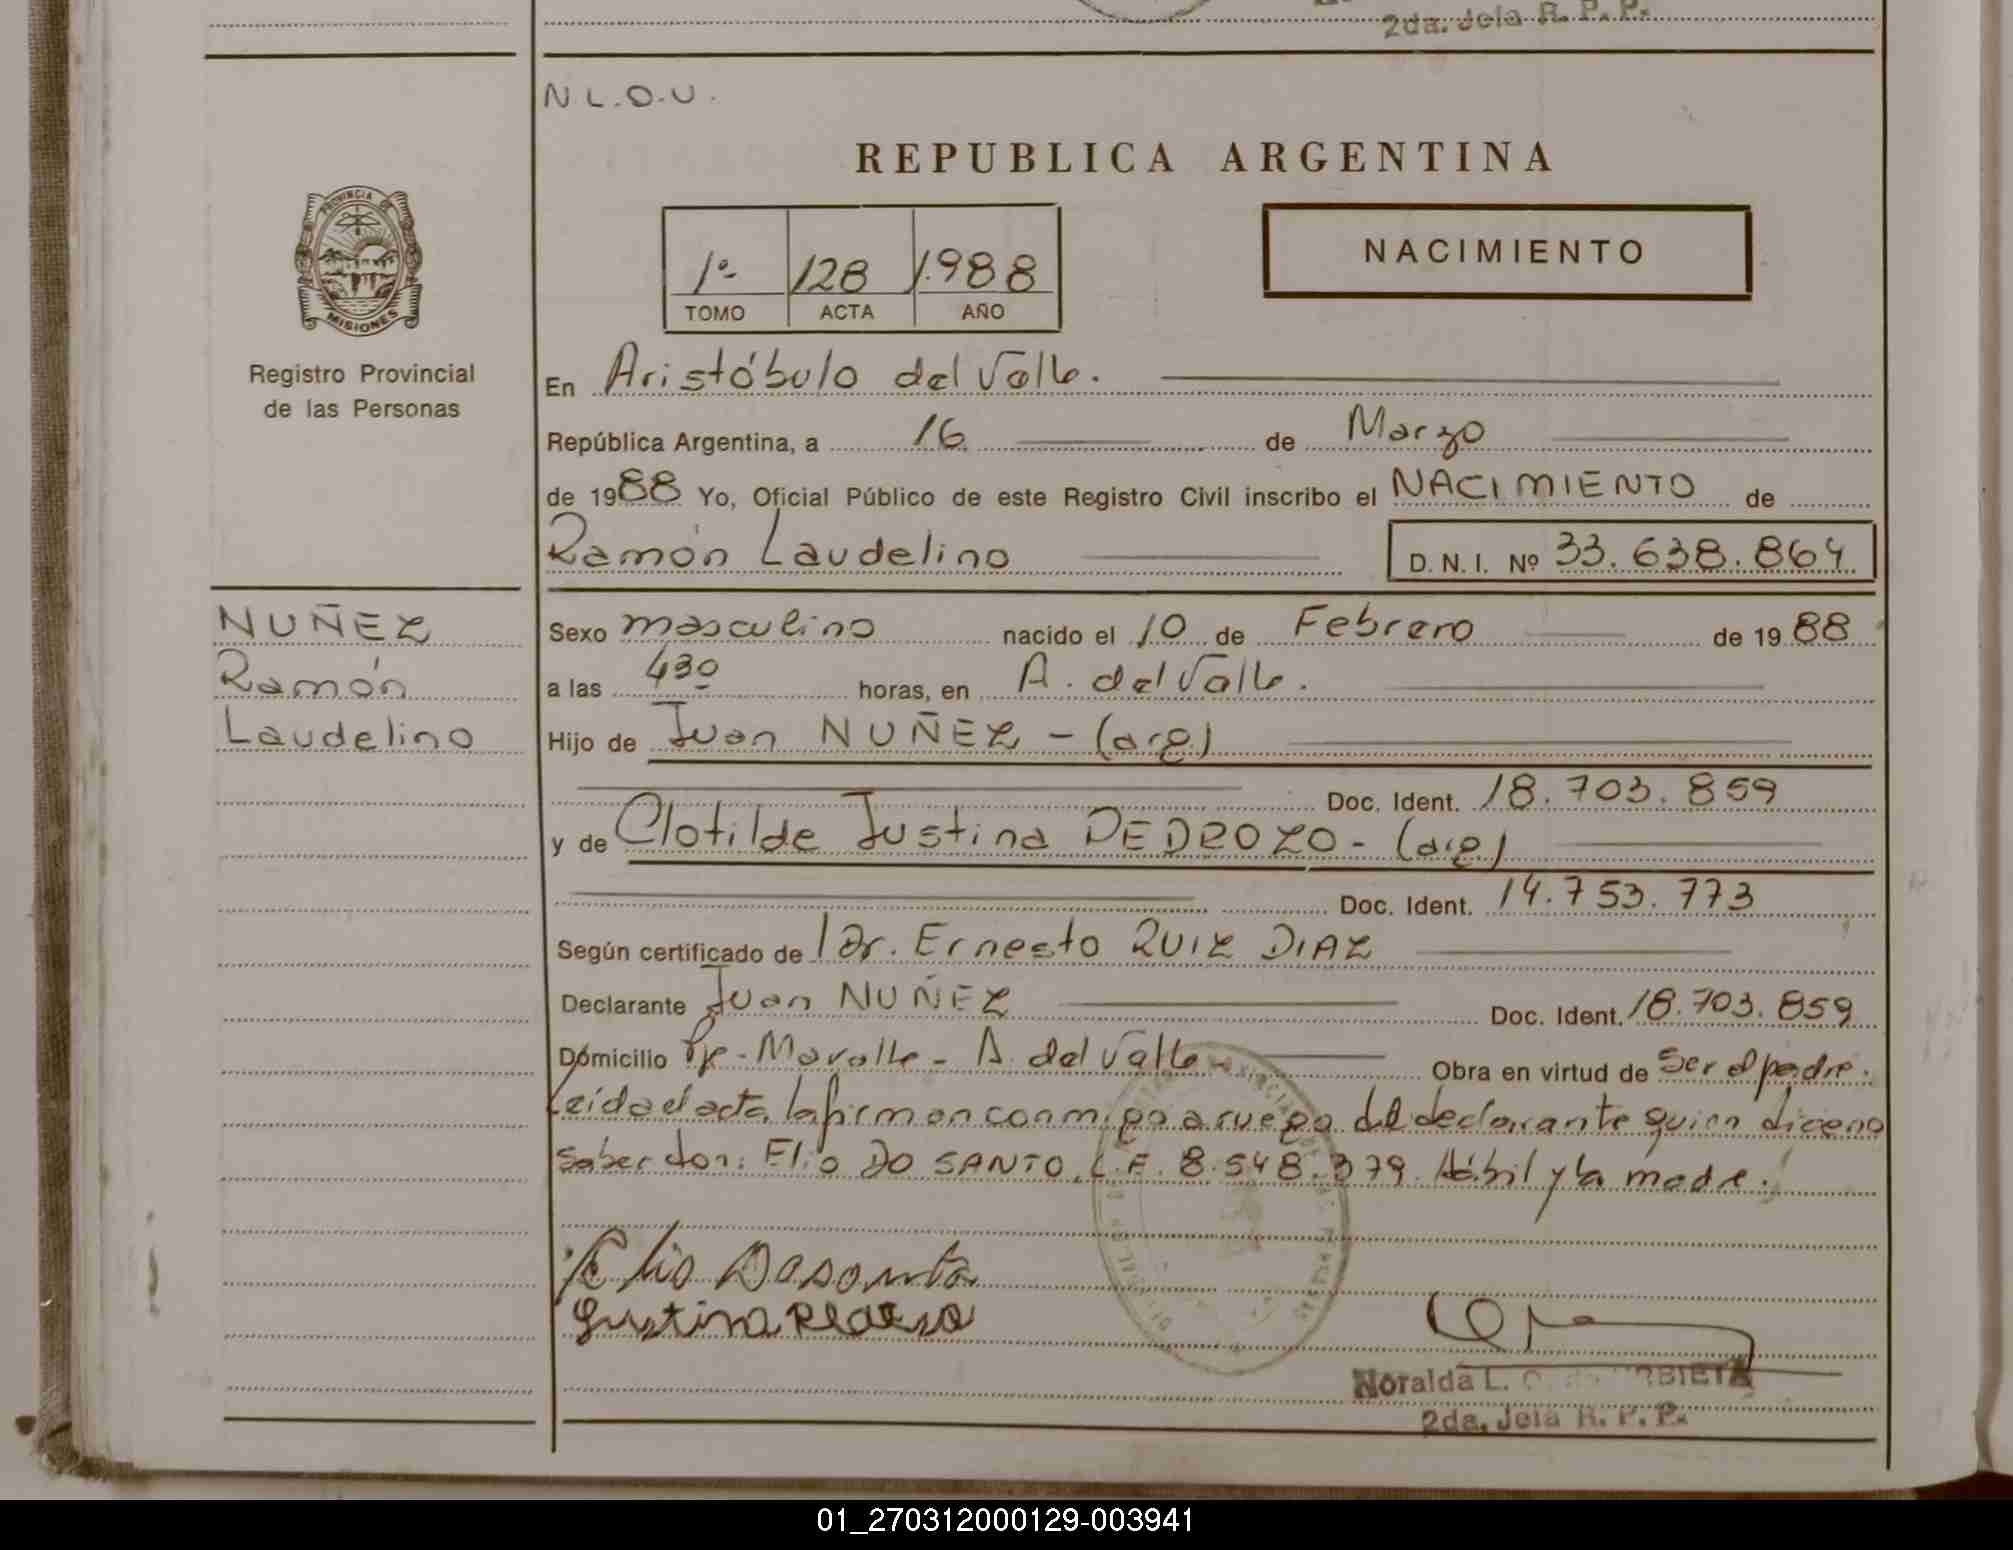 2da. Jefa R. P. P.
N.L.O.U.
REPUBLICA ARGENTINA
PROVINCIA DE
MISIONES
Registro Provincial
de las Personas
1º 128 1.988
TOMO ACTA AÑO
NACIMIENTO
En Aristóbulo del Valle.
República Argentina, a 16 de Marzo
de 1988 Yo, Oficial Público de este Registro Civil inscribo el NACIMIENTO de
Ramón Laudelino D. N. I. Nº 33.638.864
NUÑEZ
Ramón
Laudelino
Sexo masculino nacido el 10 de Febrero de 1988
a las 430 horas, en A. del Valle.
Hijo de Juan NUÑEZ - (arg)
Doc. Ident. 18.703.859
y de Clotilde Justina PEDROZO - (arg)
Doc. Ident. 14.753.773
Según certificado de Dr. Ernesto RUIZ DIAZ
Declarante Juan NUÑEZ Doc. Ident. 18.703.859
Domicilio - A. del Valle Obra en virtud de ser el padre.
Leida el acta, la firman conmigo a ruego del declarante quien dice no
saber don: Elio DO SANTO, L.E. 8.548.379. Hábil y la madre.
Elio Dosanto
Justina
Noralda L.
2da. Jefa R. P. P.
01_270312000129-003941